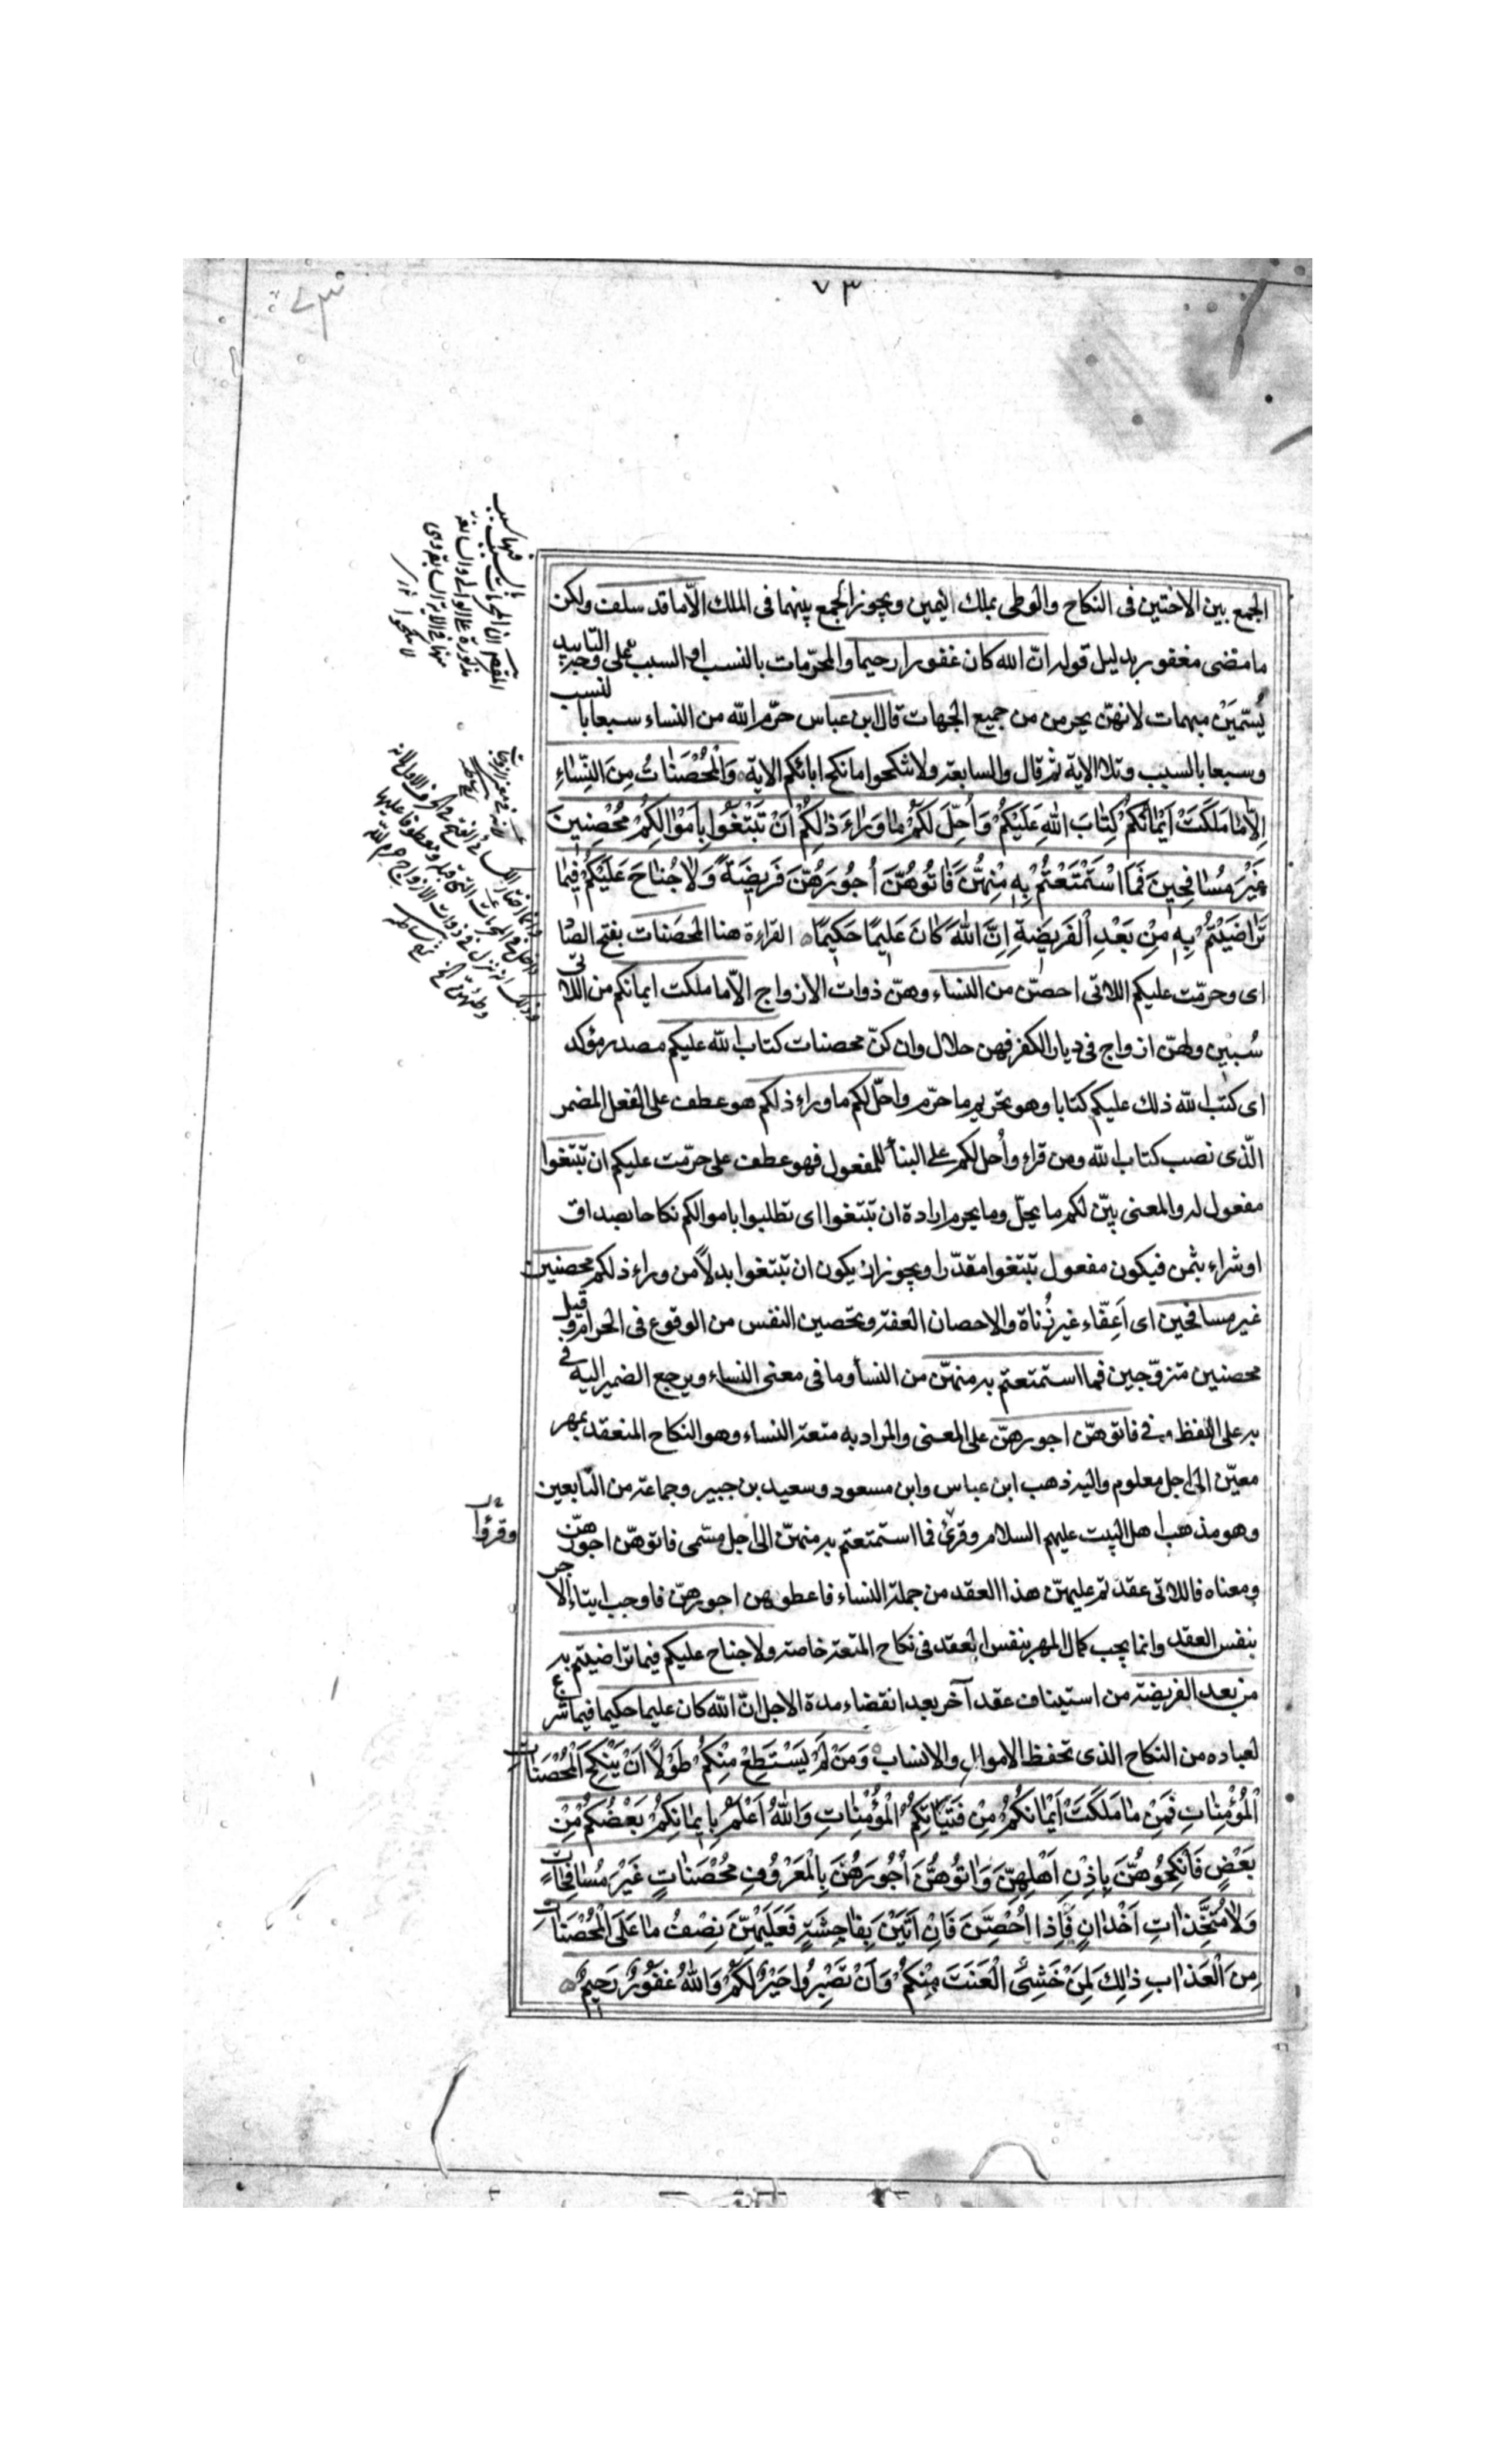 ٧٣
الجمع بين الاختين فى النكاح والوطى بملك اليمين ويجوز الجمع بينهما فى الملك الّا ما قد سلف ولكن
ما مضى مغفور بدليل قوله انّ الله كان غفورا رحيما والمحرّمات بالنسب او السبب على وجه التابيد
يُسَمَّيْنَ مبهمات لانهنّ يحرمن من جميع الجهات قال ابن عباس حرّم الله من النساء سبعا بالنسب
وسبعا بالسبب وتلا الاية ثم قال والسابعة ولا تنكحوا ما نكح ابائكم الاية وَالْمُحْصَنَاتُ مِنَ النِّسَاءِ
اِلَّا مَا مَلَكَتْ اَيْمَانُكُمْ كِتَابَ اللهِ عَلَيْكُمْ وَاُحِلَّ لَكُمْ مَا وَرَاءَ ذَلِكُمْ اَنْ تَبْتَغُوا بِاَمْوَالِكُمْ مُحْصِنِينَ
غَيْرَ مُسَافِحِينَ فَمَا اسْتَمْتَعْتُمْ بِهِ مِنْهُنَّ فَاتُوهُنَّ اُجُورَهُنَّ فَرِيضَةً وَلَا جُنَاحَ عَلَيْكُمْ فِيمَا
تَرَاضَيْتُمْ بِهِ مِنْ بَعْدِ الْفَرِيضَةِ اِنَّ اللهَ كَانَ عَلِيمًا حَكِيمًا القراءة هنا المحصَنات بفتح الصّاد
اى وحرّمت عليكم اللاتى احصنّ من النساء وهنّ ذوات الازواج الّا ما ملكت ايمانكم من اللاتى
سُبين ولهنّ ازواج فى ديار الكفر فهن حلال وان كنّ محصنات كتاب الله عليكم مصدر مؤكد
اى كتب الله ذلك عليكم كتابا وهو تحريم ما حرّم واحلّ لكم ما وراء ذلكم هو عطف على الفعل المضمر
الّذى نصب كتاب الله ومن قراء وأُحل لكم على البنأ للمفعول فهو عطف على حرّمت عليكم ان تبتغوا
مفعول له والمعنى بيّن لكم ما يحلّ وما يحرم ارادة ان تبتغوا اى تطلبوا باموالكم نكاحا بصداق
او شراء بثمن فيكون مفعول تبتغوا مقدّرا ويجوز ان يكون ان تبتغوا بدلاً من وراء ذلكم محصنين
غير مسافحين اى اَعِفّاء غير زُناة والاحصان العفة وتحصين النفس من الوقوع فى الحرام وقيل
محصنين متزوّجين فما استمتعتم به منهنّ من النسأ وما فى معنى النساء ويرجع الضمير اليه فى
به على اللفظ وفى فاتوهنّ اجورهنّ على المعنى والمراد به متعة النساء وهو النكاح المنعقد بمهر
معيّن الى اجل معلوم واليه ذهب ابن عباس وابن مسعود وسعيد بن جبير وجماعة من التابعين
وهو مذهب اهل البيت عليهم السلام وقرئ فما استمتعتم به منهنّ الى اجل مسّمى فاتوهنّ اجورهنّ
ومعناه فاللاتى عقدتم عليهنّ هذا العقد من جملة النساء فاعطوهن اجورهنّ فاوجب ايتاء الاجر
بنفس العقد وانما يجب كمال المهر بنفس العقد فى نكاح المتعة خاصة ولا جناح عليكم فيما تراضيتم به
من بعد الفريضة من استيناف عقد آخر بعد انقضاء مدة الاجل انّ الله كان عليما حكيما فيما شرع
لعباده من النكاح الذى تحفظ الاموال والانساب وَمَنْ لَمْ يَسْتَطِعْ مِنْكُمْ طَوْلاً اَنْ يَنْكِحَ الْمُحْصَنَاتِ
الْمُؤْمِنَاتِ فَمِنْ مَا مَلَكَتْ اَيْمَانُكُمْ مِنْ فَتَيَاتِكُمُ الْمُؤْمِنَاتِ وَاللهُ اَعْلَمُ بِاِيمَانِكُمْ بَعْضُكُمْ مِنْ
بَعْضٍ فَانْكِحُوهُنَّ بِاِذْنِ اَهْلِهِنَّ وَاتُوهُنَّ اُجُورَهُنَّ بِالْمَعْرُوفِ مُحْصَنَاتٍ غَيْرَ مُسَافِحَاتٍ
وَلَا مُتَّخِذَاتِ اَخْدَانٍ فَاِذَا اُحْصِنَّ فَاِنْ اَتَيْنَ بِفَاحِشَةٍ فَعَلَيْهِنَّ نِصْفُ مَا عَلَى الْمُحْصَنَاتِ
مِنَ الْعَذَابِ ذَلِكَ لِمَنْ خَشِىَ الْعَنَتَ مِنْكُمْ وَاَنْ تَصْبِرُوا خَيْرٌ لَكُمْ وَاللهُ غَفُورٌ رَحِيمٌ